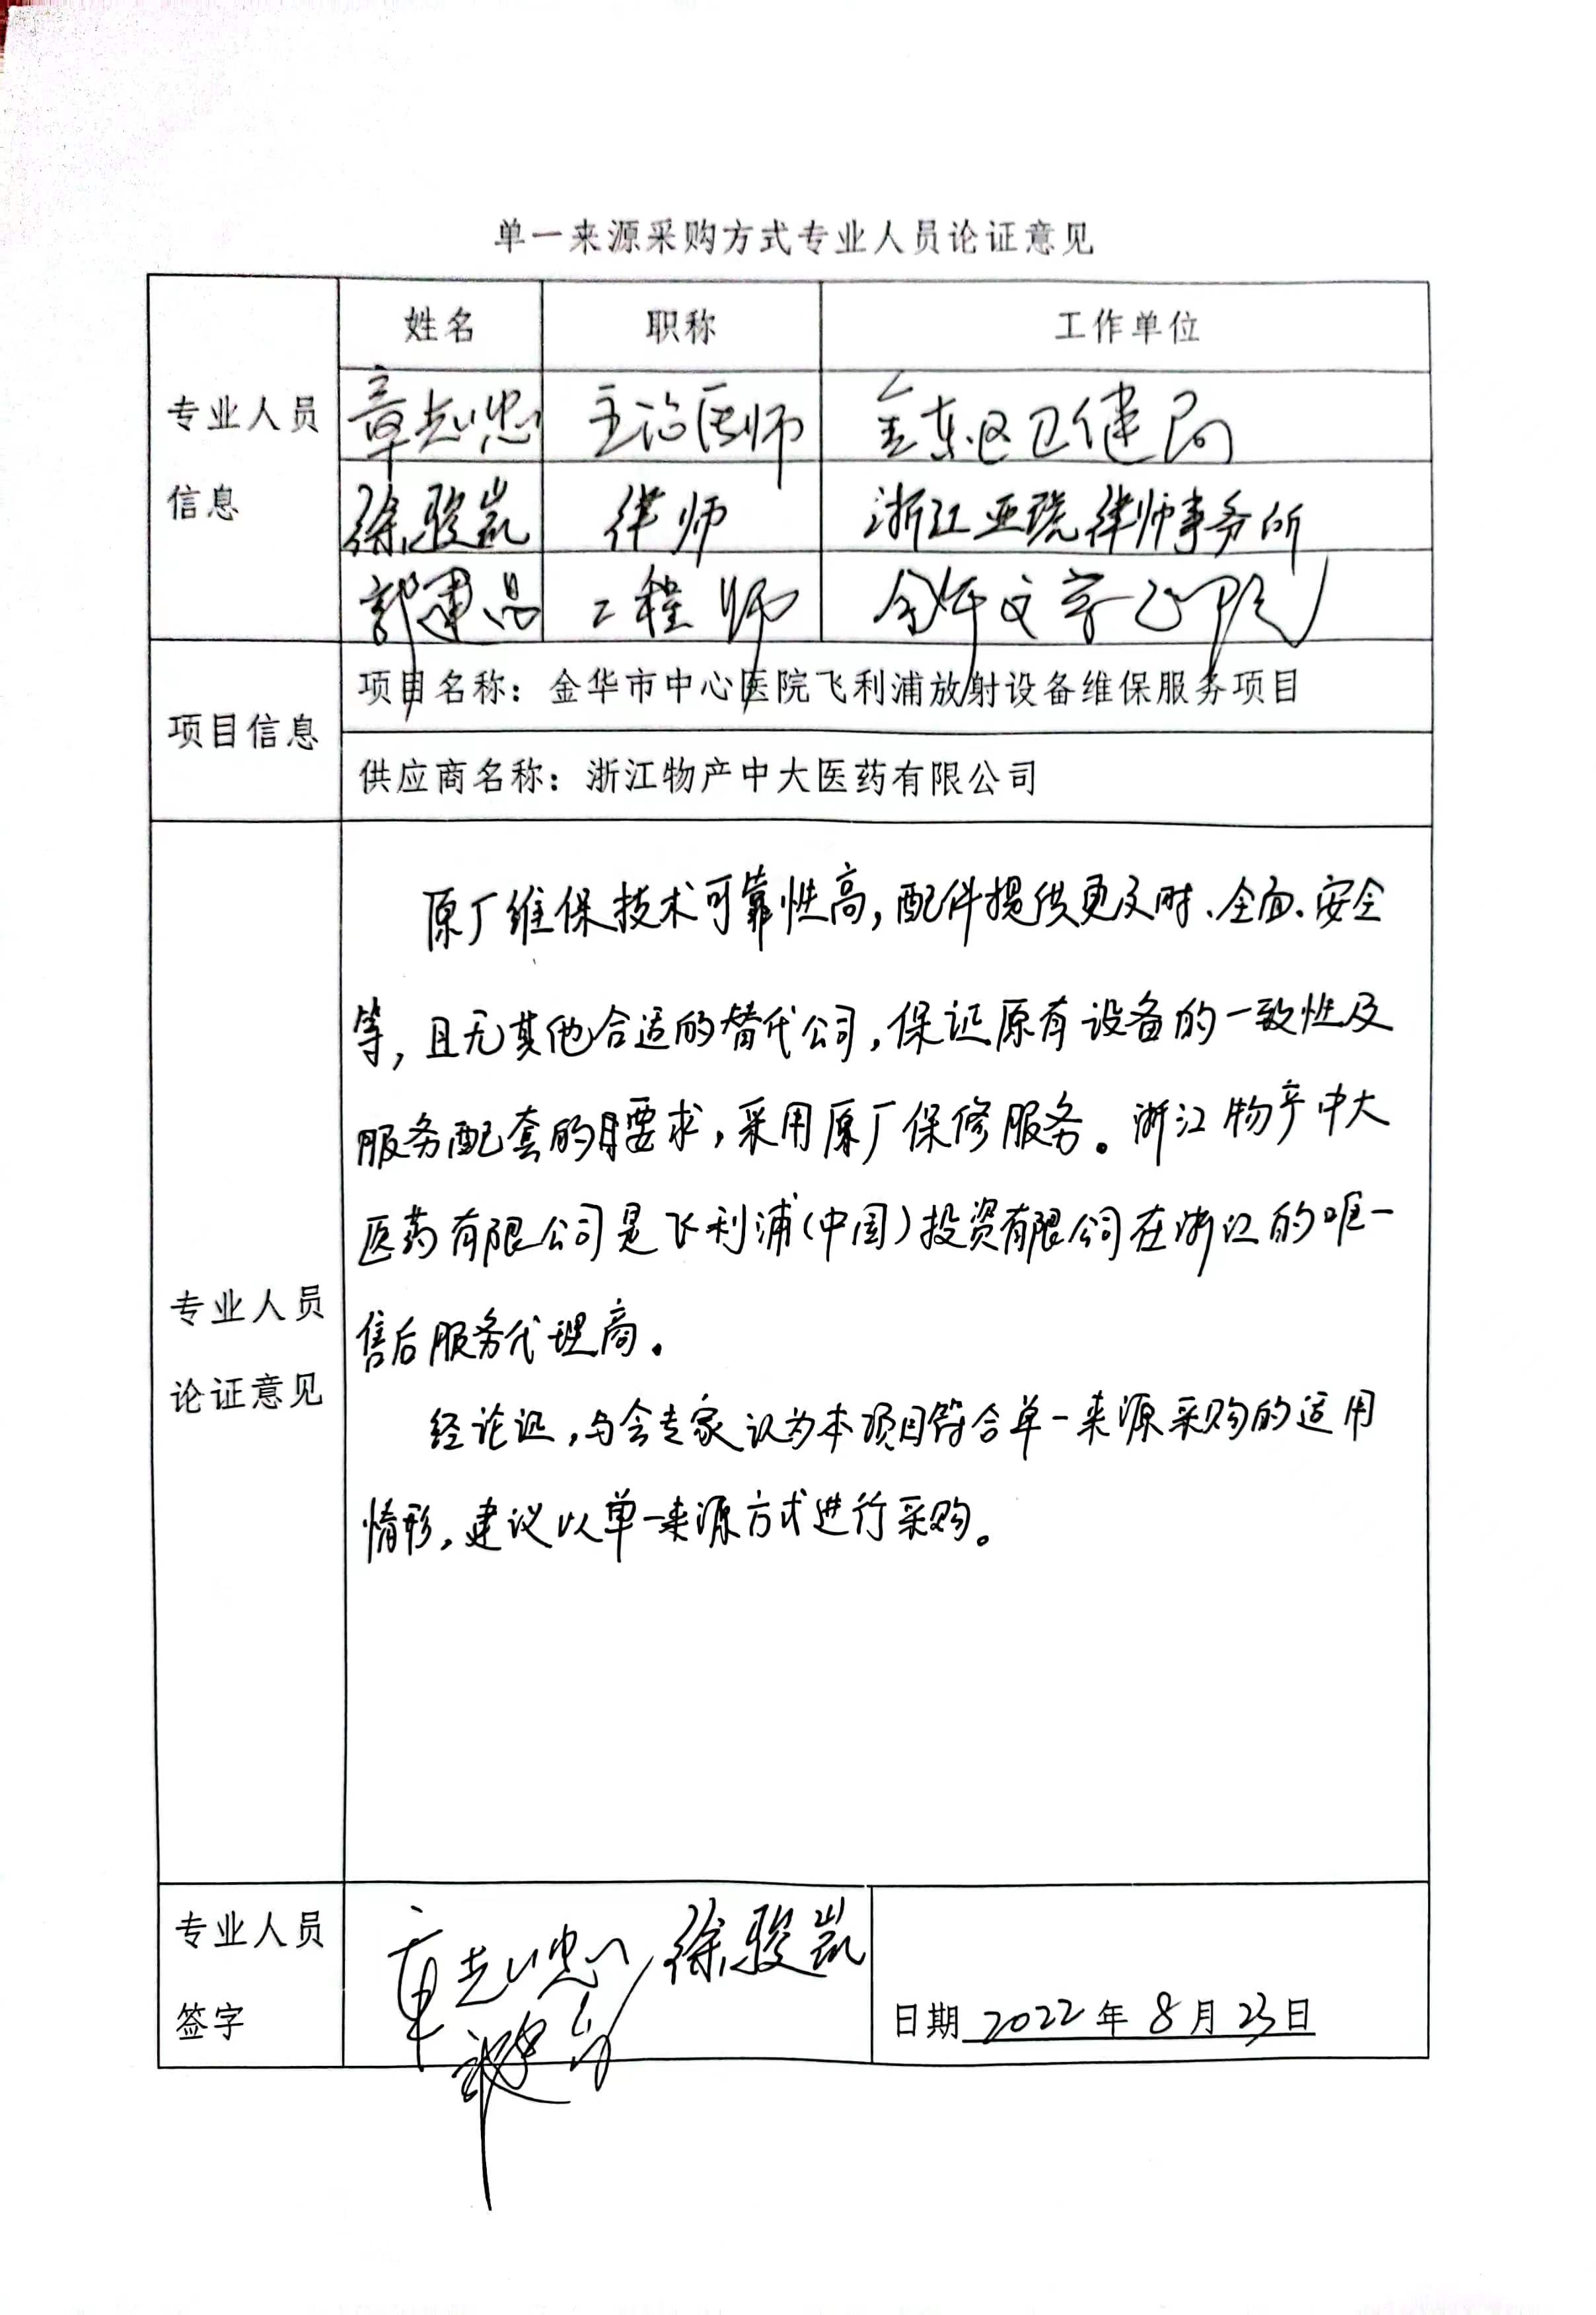 单一来源采购方式专业人员论证意见
姓名 职称 工作单位
专业人员
信息
章志忠 主治医师 金东区卫健局
徐骏凯 律师 浙江亚琉律师事务所
郭建品 工程师
项目信息
项目名称：金华市中心医院飞利浦放射设备维保服务项目
供应商名称：浙江物产中大医药有限公司
专业人员
论证意见
原厂维保技术可靠性高，配件提供更及时、全面、安全
等，且无其他合适的替代公司，保证原有设备的一致性及
服务配套的要求，采用原厂保修服务。浙江物产中大
医药有限公司是飞利浦（中国）投资有限公司在浙江的唯一
售后服务代理商。
经论证，与会专家认为本项目符合单一来源采购的适用
情形，建议以单一来源方式进行采购。
专业人员
签字
章志忠 徐骏凯
日期 2022年8月23日